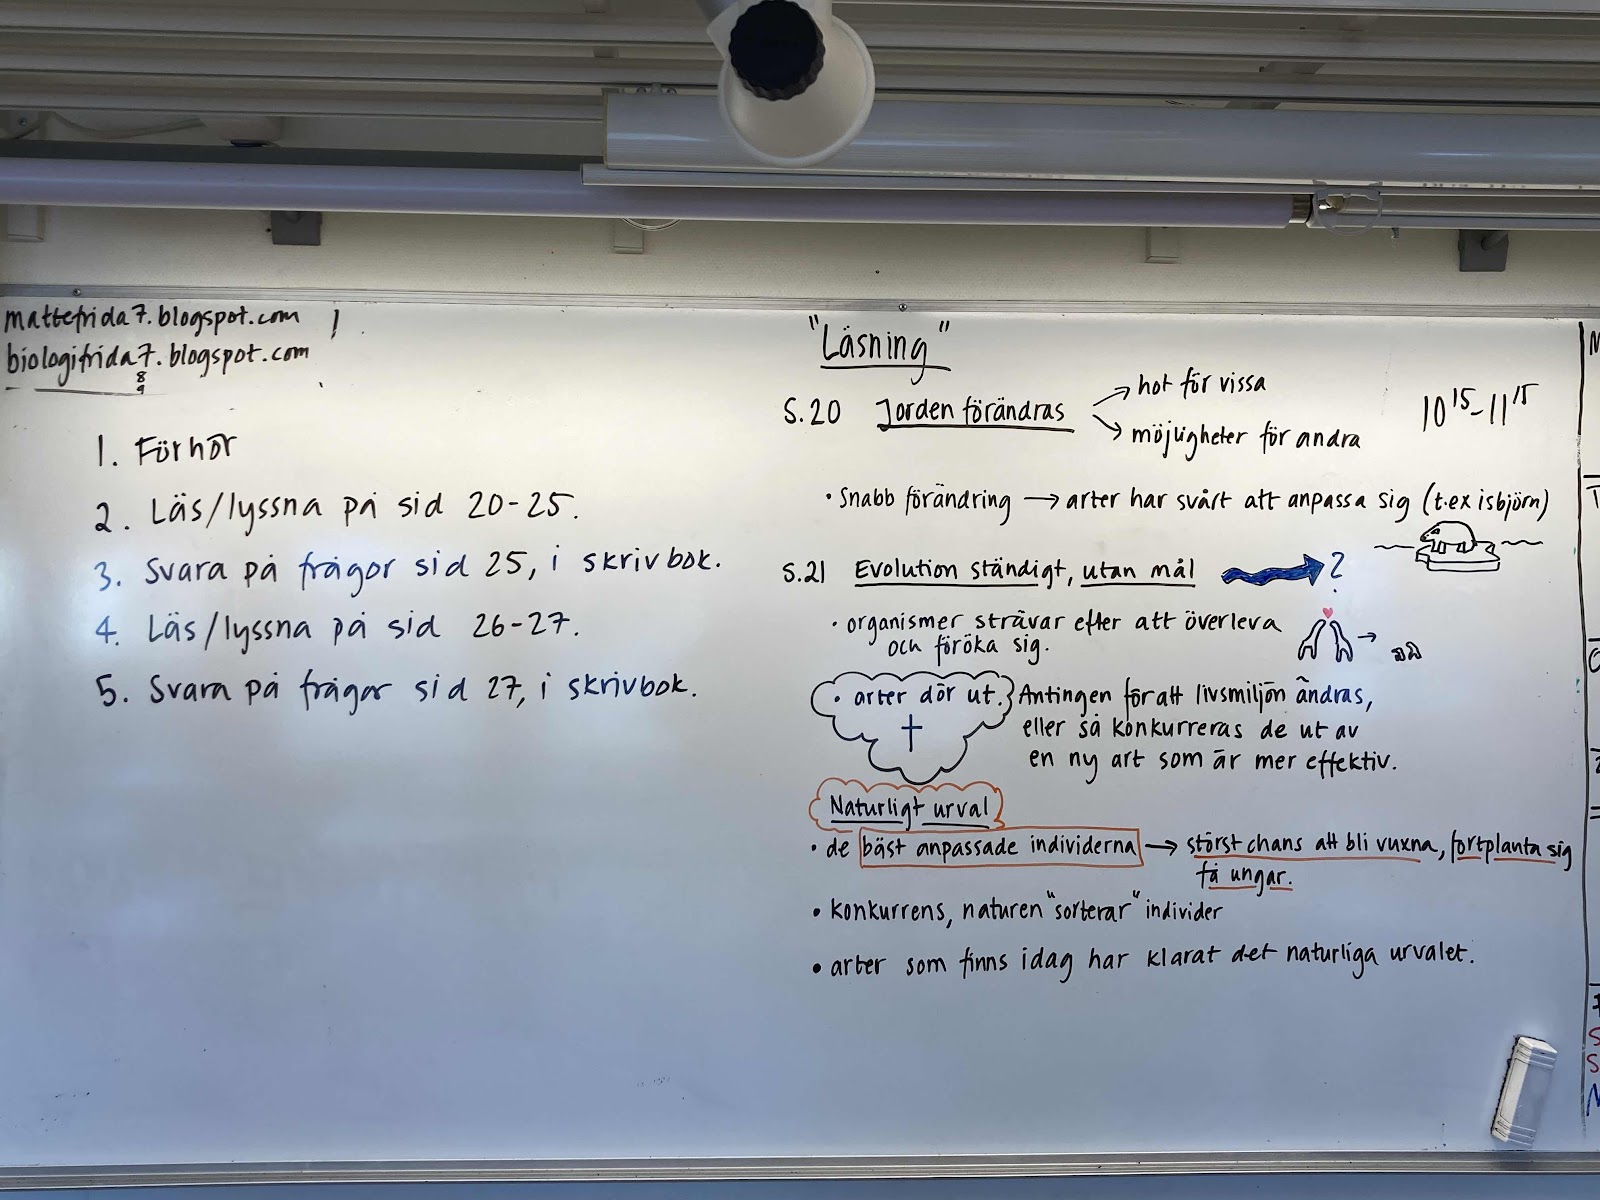 mattefrida7.blogspot.com !
biologifrida7.blogspot.com
8
9
1. Förhör
2. Läs/lyssna på sid 20-25.
3. Svara på frågor sid 25, i skrivbok.
4. Läs/lyssna på sid 26-27.
5. Svara på frågor sid 27, i skrivbok.
"Läsning"
S.20 Jorden förändras → hot för vissa
→ möjligheter för andra
10¹⁵-11¹⁵
• Snabb förändring → arter har svårt att anpassa sig (t.ex isbjörn)
S.21 Evolution ständigt, utan mål → ?
• organismer strävar efter att överleva
och föröka sig.
• arter dör ut. Antingen för att livsmiljön ändras,
eller så konkurreras de ut av
en ny art som är mer effektiv.
Naturligt urval
• de bäst anpassade individerna → störst chans att bli vuxna, fortplanta sig
få ungar.
• konkurrens, naturen "sorterar" individer
• arter som finns idag har klarat det naturliga urvalet.